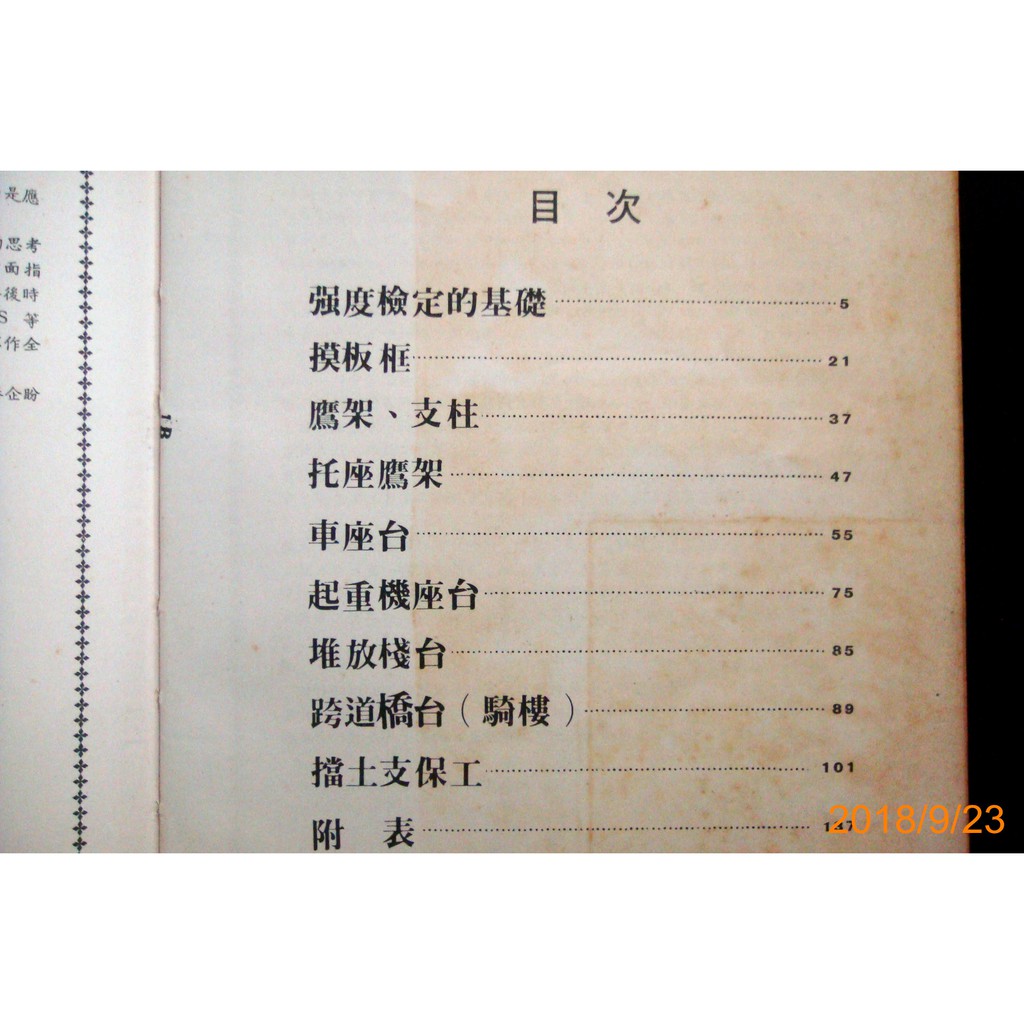 是應
思考
面指
後時
S 等
作全
企盼
目 次
强度檢定的基礎 5
摸板框 21
鷹架、支柱 37
托座鷹架 47
車座台 55
起重機座台 75
堆放棧台 85
跨道橋台（騎樓） 89
擋土支保工 101
附 表
2018/9/23